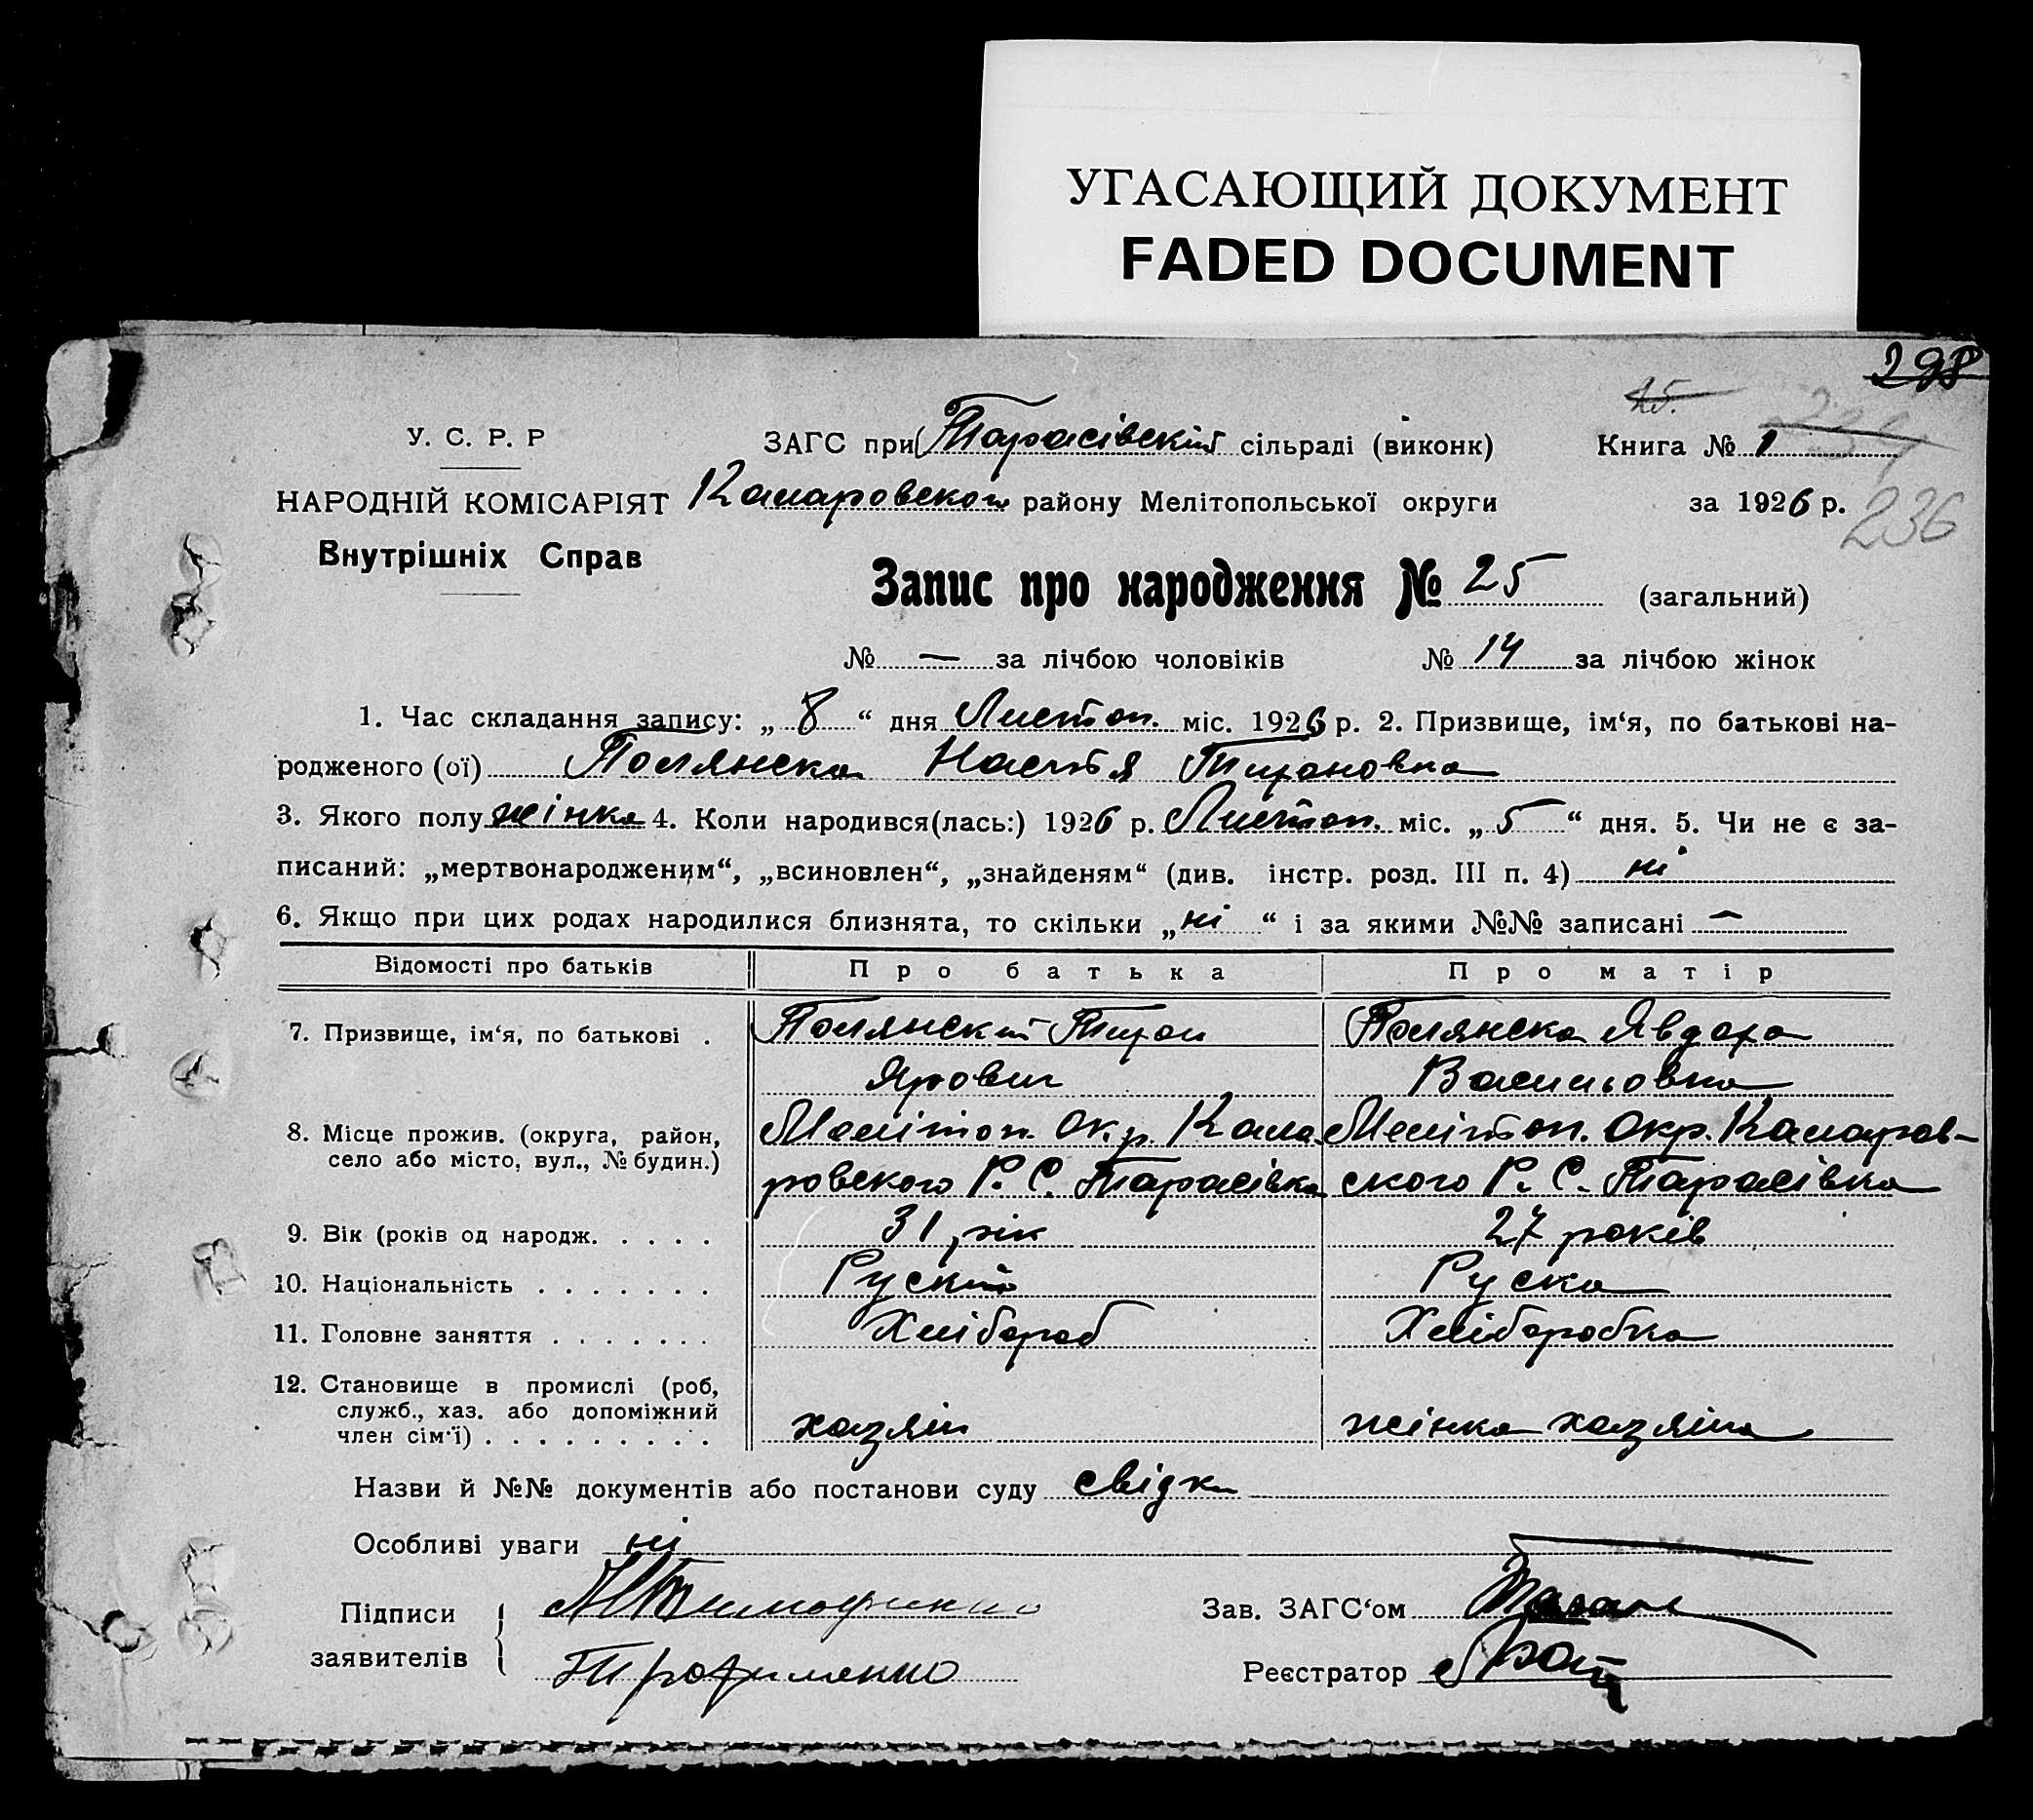 УГАСАЮЩИЙ ДОКУМЕНТ
FADED DOCUMENT
298
15.
У. С. Р. Р
ЗАГС при Тарасівскій сільраді (виконк)
Книга № 1
НАРОДНІЙ КОМІСАРІЯТ
Комаровского району Мелітопольської округи
за 1926 р.
236
Внутрішніх Справ
Запис про народження № 25 (загальний)
№ — за лічбою чоловіків № 14 за лічбою жінок
1. Час складання запису: „ 8 “ дня Листоп. міс. 1926 р. 2. Призвище, ім‘я, по батькові на-
родженого (ої) Полянска Настя
3. Якого полу жінка 4. Коли народився(лась:) 1926 р. Листоп. міс. „ 5 “ дня. 5. Чи не є за-
писаний: „мертвонародженим“, „всиновлен“, „знайденям“ (див. інстр. розд. III п. 4) ні
6. Якщо при цих родах народилися близнята, то скільки „ ні “ і за якими №№ записані —
Відомості про батьків
Про батька
Про матір
7. Призвище, ім‘я, по батькові .
Полянский
Полянска Явдоха
Васильовна
8. Місце прожив. (округа, район,
село або місто, вул., № будин.)
Мелітоп. Окр. Кома-
ровского Р. С. Тарасівка
Мелітоп. Окр. Комаров-
ского Р. С. Тарасівка
9. Вік (років од народж. . . . .
31 рік
27 років
10. Національність . . . . . . .
Руский
Руска
11. Головне заняття . . . . . . .
Хлібороб
Хліборобка
12. Становище в промислі (роб,
служб., хаз. або допоміжний
член сім‘ї) . . . . . . . . .
хазяін
жінка хазяіна
Назви й №№ документів або постанови суду свідки
Особливі уваги ні
Підписи
заявителів
Трофименко
Зав. ЗАГС‘ом
Реєстратор